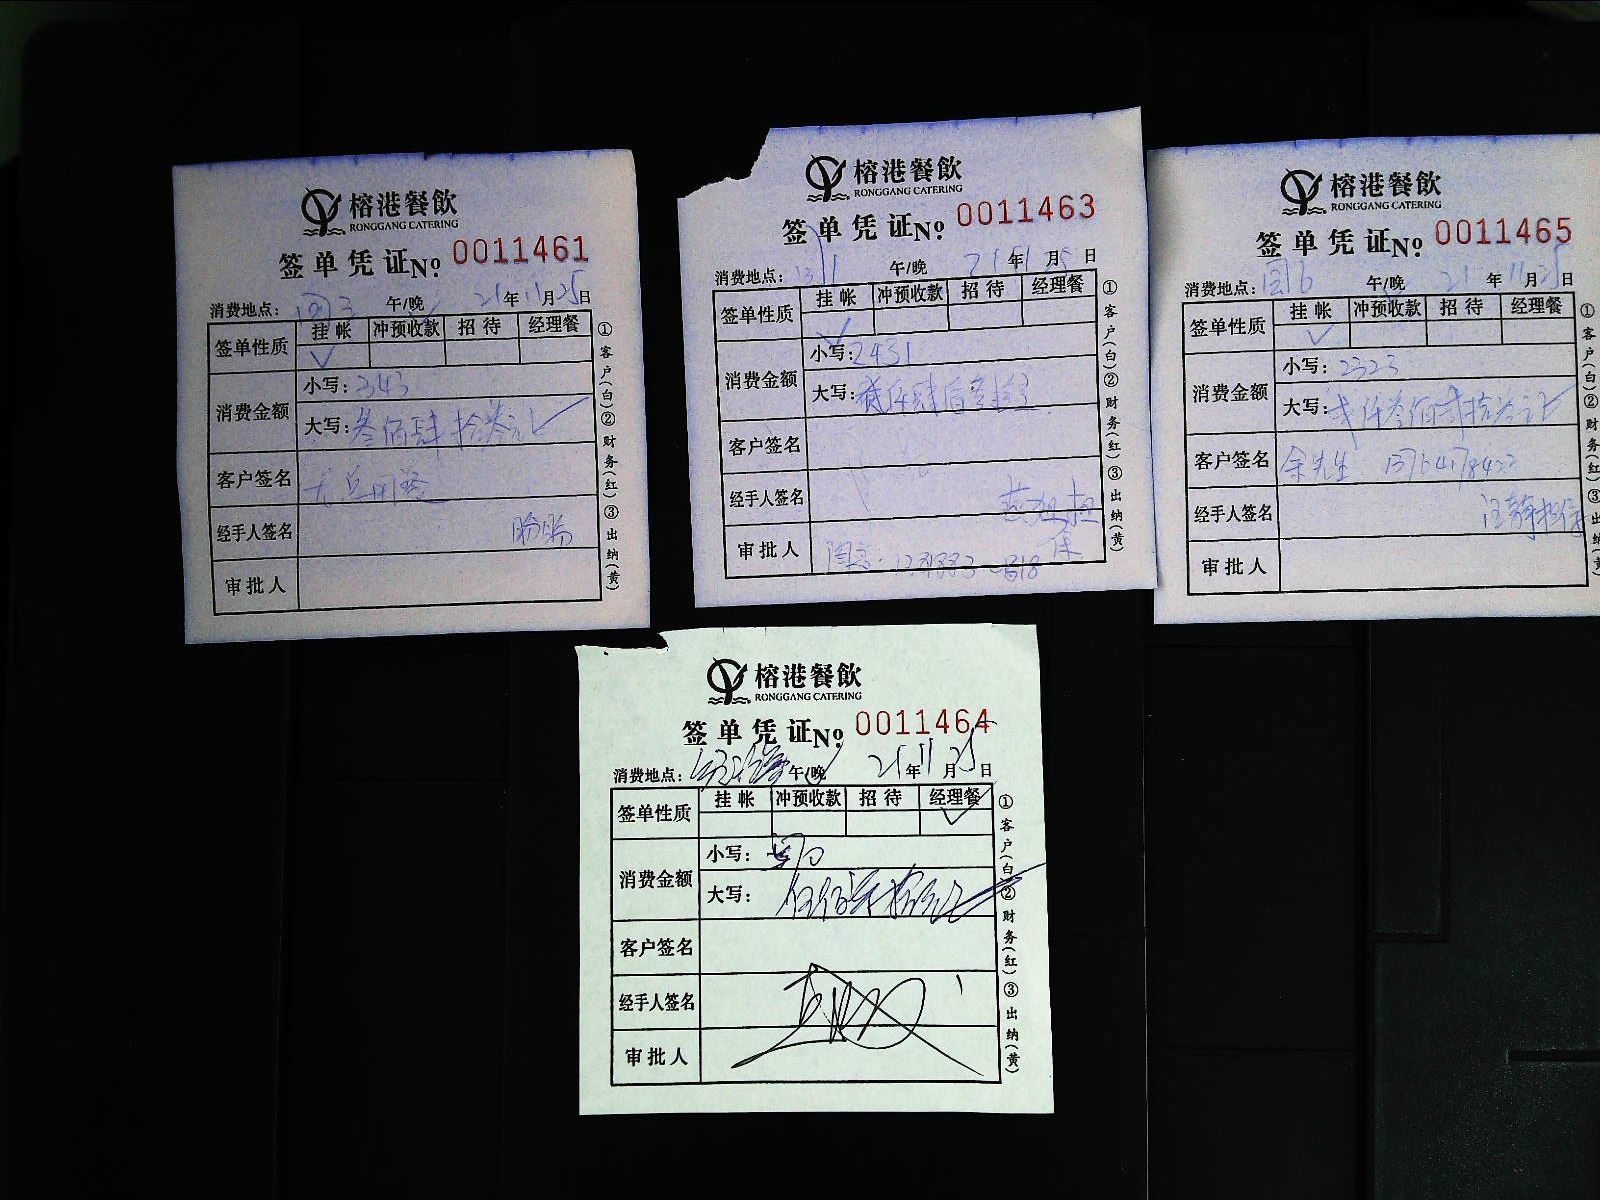 榕港餐飲
RONGGANG CATERING
签单凭证№ 0011461
消费地点: 午/晚 21年11月25日
签单性质 挂帐 冲预收款 招待 经理餐
✓
消费金额 小写: 343
大写: 叁佰肆拾叁元正
客户签名
经手人签名
审批人
①客户(白)②财务(红)③出纳(黄)
榕港餐飲
RONGGANG CATERING
签单凭证№ 0011463
消费地点: 午/晚 21年11月25日
签单性质 挂帐 冲预收款 招待 经理餐
✓
消费金额 小写: 2431
大写: 贰仟肆佰叁拾
客户签名
经手人签名
审批人
①客户(白)②财务(红)③出纳(黄)
榕港餐飲
RONGGANG CATERING
签单凭证№ 0011465
消费地点: 午/晚 21年11月25日
签单性质 挂帐 冲预收款 招待 经理餐
✓
消费金额 小写: 2323
大写: 贰仟叁佰贰拾叁元正
客户签名 余先生
经手人签名 汪静担保
审批人
①客户(白)②财务(红)③出纳(黄)
榕港餐飲
RONGGANG CATERING
签单凭证№ 0011464
消费地点: 午/晚 21年11月25日
签单性质 挂帐 冲预收款 招待 经理餐
✓
消费金额 小写:
大写:
客户签名
经手人签名
审批人
①客户(白)②财务(红)③出纳(黄)